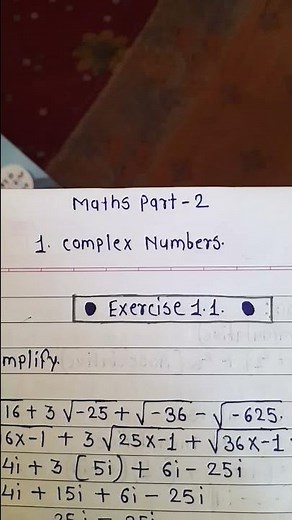 Maths Part-2
1. Complex Numbers.
• Exercise 1.1. •
mplify.
16 + 3 √-25 + √-36 - √-625.
6x-1 + 3 √25x-1 + √36x-1
4i + 3 (5i) + 6i - 25i
4i + 15i + 6i - 25i
25i - 25i